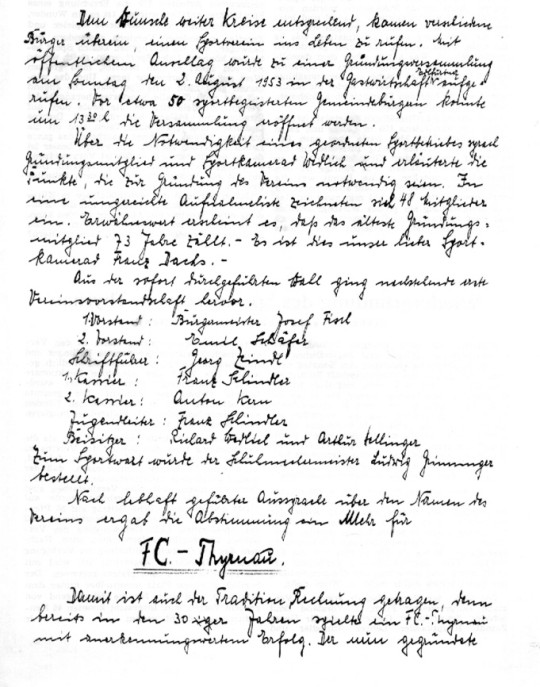 Dem Wunsche weiter Kreise entsprechend, kamen verschiedene
Bürger überein, einen Sportverein ins Leben zu rufen. Mit
öffentlichem Anschlag wurde zu einer Gründungsversammlung
am Sonntag den 2. August 1953 in der Gastwirtschaft aufge-
rufen. Vor etwa 50 sportbegeisterten Gemeindebürgern konnte
um 13 30 h die Versammlung eröffnet werden.
Über die Notwendigkeit eines geordneten Sportbetriebes sprach
Gründungsmitglied und Sportkamerad Wedlich und erläuterte die
Punkte, die zur Gründung des Vereins notwendig seien. In
eine umgereichte Aufnahmeliste zeichneten sich 48 Mitglieder
ein. Erwähnenswert erscheint es, daß das älteste Gründungs-
mitglied 73 Jahre zählt. - Es ist dies unser lieber Sport-
kamerad Franz Dachs. -
Aus der sofort durchgeführten Wahl ging nachstehende erste
Vereinsvorstandschaft hervor.
1. Vorstand: Bürgermeister Josef Fisch
2. Vorstand: Emil Schäfer
Schriftführer: Georg Zeindl
1. Kassier: Franz Schindler
2. Kassier: Anton Kern
Jugendleiter: Franz Schindler
Beisitzer: Richard Wedlich und Arthur Hellinger
Zum Sportwart wurde der Schuhmachermeister Ludwig Grininger
bestellt.
Nach lebhaft geführter Aussprache über den Namen des
Vereins ergab die Abstimmung ein Mehr für
FC.-Thyrnau.
Damit ist auch der Tradition Rechnung getragen, denn
bereits in den 30iger Jahren spielte ein FC.-Thyrnau
mit anerkennungswertem Erfolg. Der nun gegründete